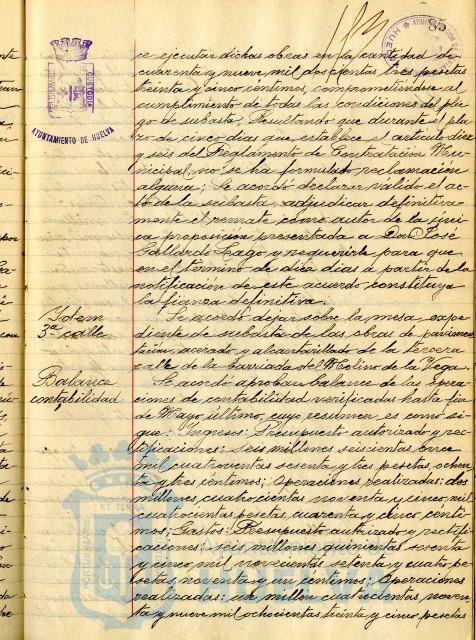 85
AYUNTAMIENTO DE HUELVA
ce ejecutar dichas obras en la cantidad de
cuarenta y nueve mil doscientas tres pesetas
treinta y cinco centimos, comprometiendose al
cumplimiento de todas las condiciones del plie
go de subasta. Resultando que durante el pla
zo de cinco dias que establece el articulo diez
y seis del Reglamento de Contratación Mu
nicipal no se ha formulado reclamacion
alguna; Se acordó declarar valido el ac
to de la subasta, adjudicar definitiva
mente el remate como autor de la úni
ca proposición presentada a Don José
Gallardo Lago y requerirle para que
en el término de diez dias a partir de la
notificación de este acuerdo constituya
la fianza definitiva.
Idem
3ª calle
Se acordó dejar sobre la mesa, expe
diente de subasta de las obras de pavimen
tación, acerado y alcantarillado de la tercera
calle de la barriada del Molino de la Vega
Balance
contabilidad
Se acordó aprobar balance de las opera
ciones de contabilidad verificadas hasta fin
de Mayo último, cuyo resumen es como si
gue: Ingresos: Presupuesto autorizado y rec
tificaciones: seis millones seiscientas once
mil cuatrocientas sesenta y tres pesetas, ochen
ta y tres céntimos; Operaciones realizadas: dos
millones cuatrocientas noventa y cinco mil
cuatrocientas pesetas, cuarenta y cinco centi
mos; Gastos: Presupuesto autorizado y rectifi
caciones: seis millones quinientas sesenta
y cinco mil novecientas setenta y cuatro pe
setas, noventa y un céntimos; Operaciones
realizadas: un millón cuatrocientas noven
ta y nueve mil ochocientas treinta y cinco pesetas